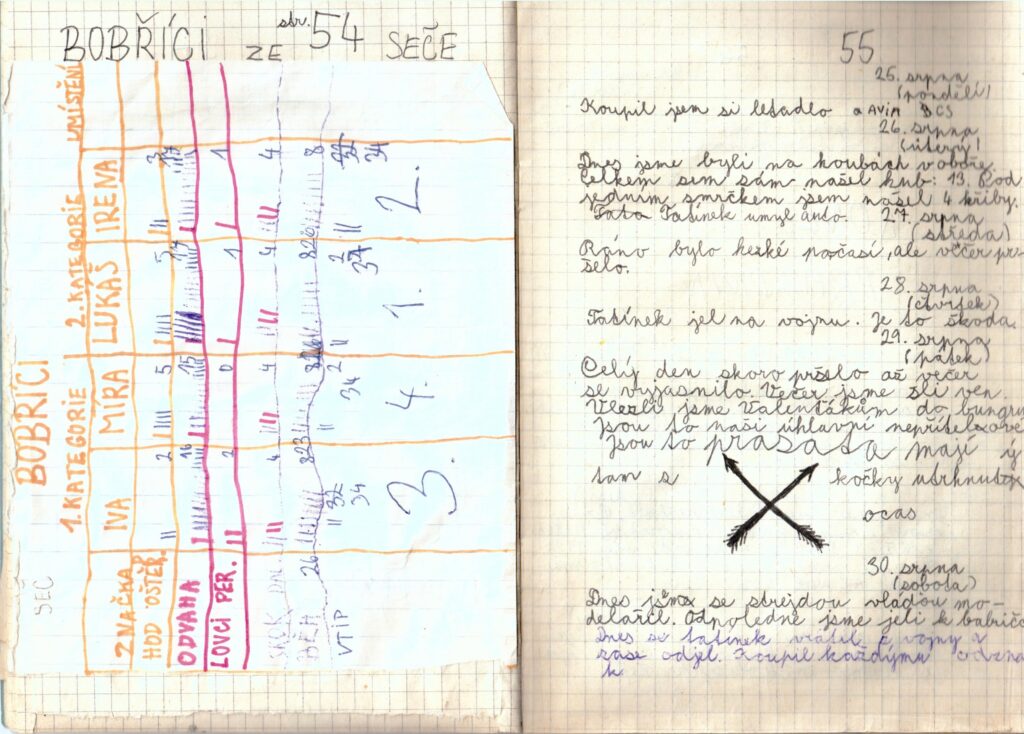 BOBŘÍCI ZE str. 54 SEČE
SEČ
BOBŘÍCI
1. KATEGORIE 2. KATEGORIE UMÍSTĚNÍ
ZNAČKA IVA MÍRA LUKÁŠ IRENA
HOD OŠTĚP. 2 5 5 3
ODVAHA 16 15 17 17
LOVCI PER. 2 0 1 1
4 4 4 4
BĚH 26 823 826 826 8
VTIP 32 34 2 34 2 34
3. 4. 1. 2.
55
25. srpna
(pondělí)
Koupil jsem si letadlo a AVIA BCS
26. srpna
(úterý)
Dnes jsme byli na houbách v oboře.
Celkem sem sám našel hub: 13. Pod
jedním smrčkem jsem našel 4 hřiby.
Tata Tatínek umyl auto. 27. srpna
(středa)
Ráno bylo hezké počasí, ale večer pr-
šelo.
28. srpna
(čtvrtek)
Tatínek jel na vojnu. Je to škoda.
29. srpna
(pátek)
Celý den skoro pršelo až večer
se vyjasnilo. Večer jsme šli ven.
Vlezli jsme Valentákům do bungru
Jsou to naši úhlavní nepřítelové
Jsou to prasata mají ý
tam s kočky utrhnutý
ocas
30. srpna
(sobota)
Dnes jsme se strejdou vláďou mo-
delařil. Odpoledne jsme jeli k babičce
Dnes se tatínek vrátil z vojny a
zase odjel. Koupil každýmu odzna
k